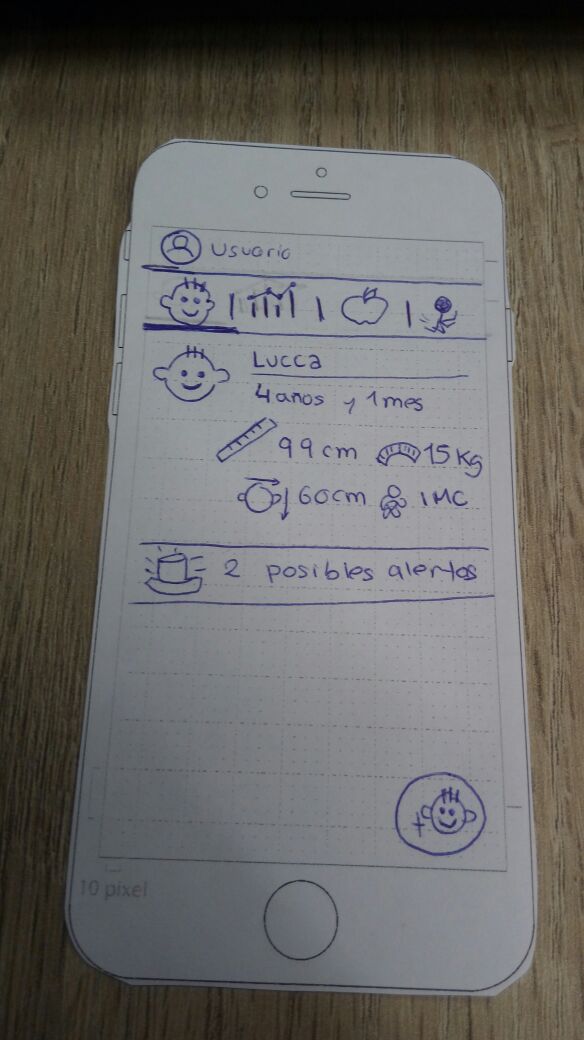 Usuario
Lucca
4 años y 1 mes
99 cm 15 Kg
60cm IMC
2 posibles alertas
+
10 pixel